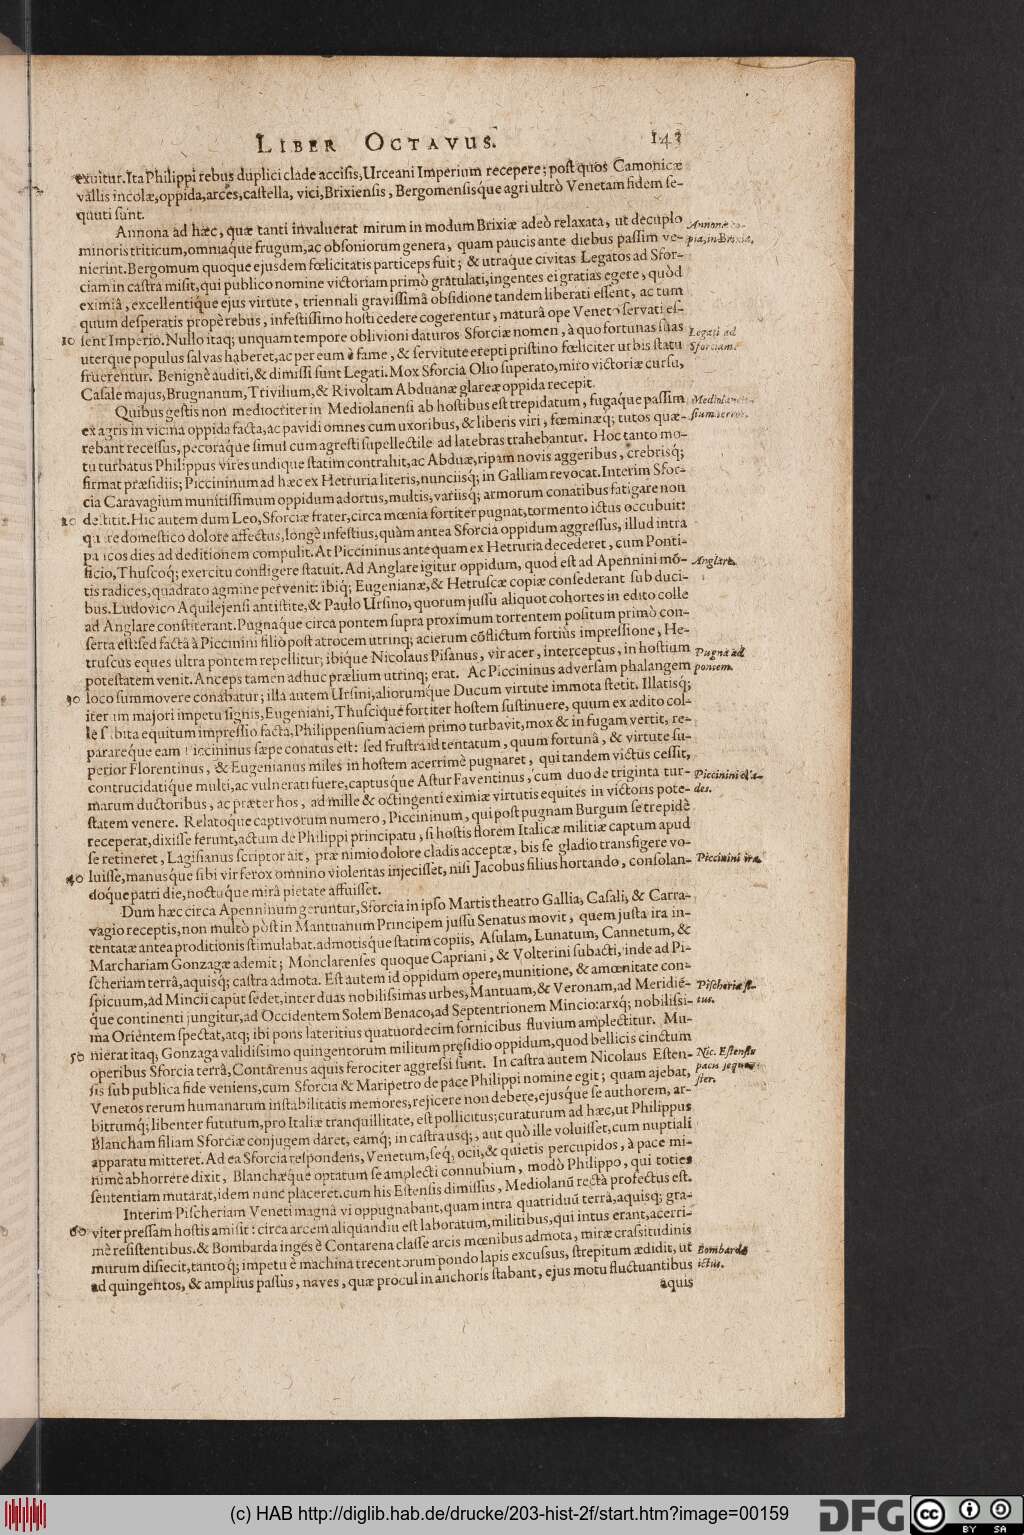 LIBER OCTAVUS. 143
exuitur. Ita Philippi rebus duplici clade accisis, Urceani Imperium recepere; post quos Camonicæ
vallis incolæ, oppida, arces, castella, vici, Brixiensis, Bergomensisque agri ultrò Venetam fidem se-
quuti sunt.
Annona ad hæc, quæ tanti invaluerat mirum in modum Brixiæ adeò relaxata, ut decuplo
Annonæ co-
minoris triticum, omniaque frugum, ac obsoniorum genera, quam paucis ante diebus passim ve-
pia, in Brixia.
nierint. Bergomum quoque ejusdem fœlicitatis particeps fuit; & utraque civitas Legatos ad Sfor-
ciam in castra misit, qui publico nomine victoriam primò gratulati, ingentes ei gratias egere, quòd
eximiâ, excellentique ejus virtute, triennali gravissimâ obsidione tandem liberati essent, ac tum
quum desperatis propè rebus, infestissimo hosti cedere cogerentur, maturâ ope Veneto servati es-
10 sent Imperio. Nullo itaq; unquam tempore oblivioni daturos Sforciæ nomen, à quo fortunas suas
Legati ad
uterque populus salvas haberet, ac per eum è fame, & servitute erepti pristino fœliciter urbis statu
Sforciam.
fruerentur. Benignè auditi, & dimissi sunt Legati. Mox Sforcia Olio superato, miro victoriæ cursu,
Casale majus, Brugnanum, Trivilium, & Rivoltam Abduanæ glareæ oppida recepit.
Quibus gestis non mediocriter in Mediolanensi ab hostibus est trepidatum, fugaque passim
Mediolanen-
ex agris in vicina oppida facta, ac pavidi omnes cum uxoribus, & liberis viri, fœminæq; tutos quæ-
sium terror.
rebant recessus, pecoraque simul cum agresti supellectile ad latebras trahebantur. Hoc tanto mo-
tu turbatus Philippus vires undique statim contrahit, ac Abduæ, ripam novis aggeribus, crebrisq;
firmat præsidiis; Piccininum ad hæc ex Hetruria literis, nunciisq; in Galliam revocat. Interim Sfor-
cia Caravagium munitissimum oppidum adortus, multis, variisq; armorum conatibus fatigare non
20 destitit. Hic autem dum Leo, Sforciæ frater, circa mœnia fortiter pugnat, tormento ictus occubuit:
quare domestico dolore affectus, longè infestius, quàm antea Sforcia oppidum aggressus, illud intra
paucos dies ad deditionem compulit. At Piccininus antequam ex Hetruria decederet, cum Ponti-
ficio, Thuscoq; exercitu confligere statuit. Ad Anglare igitur oppidum, quod est ad Apennini mō-
Anglare.
tis radices, quadrato agmine pervenit: ibiq; Eugenianæ, & Hetruscæ copiæ consederant sub duci-
bus. Ludovico Aquilejensi antistite, & Paulo Ursino, quorum jussu aliquot cohortes in edito colle
ad Anglare constiterant. Pugnaque circa pontem supra proximum torrentem positum primò con-
serta est: sed factâ à Piccinini filio post atrocem utrinq; acierum cōflictum fortiùs impressione, He-
truscus eques ultra pontem repellitur; ibique Nicolaus Pisanus, vir acer, interceptus, in hostium
Pugna ad
potestatem venit. Anceps tamen adhuc prælium utrinq; erat. Ac Piccininus adversam phalangem
pontem.
30 loco summovere conabatur; illa autem Ursini, aliorumque Ducum virtute immota stetit. Illatisq;
iterum majori impetu signis, Eugeniani, Thuscique fortiter hostem sustinuere, quum ex ædito col-
le subita equitum impressio factâ, Philippensium aciem primo turbavit, mox & in fugam vertit, re-
parareque eam Piccininus sæpe conatus est: sed frustra id tentatum, quum fortunâ, & virtute su-
perior Florentinus, & Eugenianus miles in hostem acerrimè pugnaret, qui tandem victus cessit,
contrucidatique multi, ac vulnerati fuere, captusque Astur Faventinus, cum duo de triginta tur-
Piccinini cla-
marum ductoribus, ac præter hos, ad mille & octingenti eximiæ virtutis equites in victoris pote-
des.
statem venere. Relatoque captivorum numero, Piccininum, qui post pugnam Burgum se trepidè
receperat, dixisse ferunt, actum de Philippi principatu, si hostis florem Italicæ militiæ captum apud
se retineret, Lagisianus scriptor ait, præ nimio dolore cladis acceptæ, bis se gladio transfigere vo-
40 luisse, manusque sibi vir ferox omnino violentas injecisset, nisi Jacobus filius hortando, consolan-
Piccinini ira.
doque patri die, noctuque mirâ pietate affuisset.
Dum hæc circa Apenninum geruntur, Sforcia in ipso Martis theatro Gallia, Casali, & Carra-
vagio receptis, non multò pòst in Mantuanum Principem jussu Senatus movit, quem justa ira in-
tentatæ antea proditionis stimulabat. admotisque statim copiis, Asulam, Lunatum, Cannetum, &
Marchariam Gonzagæ ademit; Monclarenses quoque Capriani, & Volterini subacti, inde ad Pi-
scheriam terrâ, aquisq; castra admota. Est autem id oppidum opere, munitione, & amœnitate con-
spicuum, ad Mincii caput sedet, inter duas nobilissimas urbes, Mantuam, & Veronam, ad Meridiē-
Pischeriæ si-
que continenti jungitur, ad Occidentem Solem Benaco, ad Septentrionem Mincio: arxq; nobilissi-
tus.
ma Orientem spectat, atq; ibi pons lateritius quatuordecim fornicibus fluvium amplectitur. Mu-
50 nierat itaq; Gonzaga validissimo quingentorum militum pręsidio oppidum, quod bellicis cinctum
operibus Sforcia terrâ, Contarenus aquis ferociter aggressi sunt. In castra autem Nicolaus Esten-
Nic. Estensis
sis sub publica fide veniens, cum Sforcia & Maripetro de pace Philippi nomine egit; quam ajebat,
pacis seque-
ster.
Venetos rerum humanarum instabilitatis memores, rejicere non debere, ejusque se authorem, ar-
bitrumq; libenter futurum, pro Italiæ tranquillitate, est pollicitus; curaturum ad hæc, ut Philippus
Blancham filiam Sforciæ conjugem daret, eamq; in castra usq;, aut quò ille voluisset, cum nuptiali
apparatu mitteret. Ad ea Sforcia respondens, Venetum, seq, ocii, & quietis percupidos, à pace mi-
nimè abhorrere dixit, Blanchæque optatum se amplecti connubium, modò Philippo, qui toties
sententiam mutarat, idem nunc placeret. cum his Estensis dimissus, Mediolanū rectâ profectus est.
Interim Pischeriam Veneti magnâ vi oppugnabant, quam intra quatriduū terrâ, aquisq; gra-
60 viter pressam hostis amisit: circa arcem aliquandiu est laboratum, militibus, qui intus erant, acerri-
mè resistentibus. & Bombarda ingēs è Contarena classe arcis mœnibus admota, miræ crassitudinis
murum disiecit, tantoq; impetu è machina trecentorum pondo lapis excussus, strepitum ædidit, ut
Bombardæ
ad quingentos, & amplius passus, naves, quæ procul in anchoris stabant, ejus motu fluctuantibus
ictus.
aquis
(c) HAB http://diglib.hab.de/drucke/203-hist-2f/start.htm?image=00159
DFG
cc BY SA